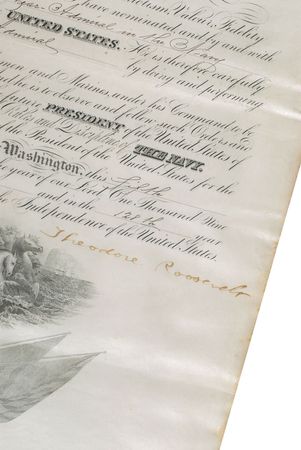 Patriotism, Valour, Fidelity
have nominated, and by and with
Rear Admiral in the Navy
UNITED STATES. He is therefore carefully
Admiral
by doing and performing
men and Marines under his Command to be
he is to observe and follow such Orders and
future PRESIDENT of the United States of
THE NAVY.
the President of the United States for the
Washington, this
year of our Lord One Thousand Nine
and in the year
Independence of the United States.
Theodore Roosevelt